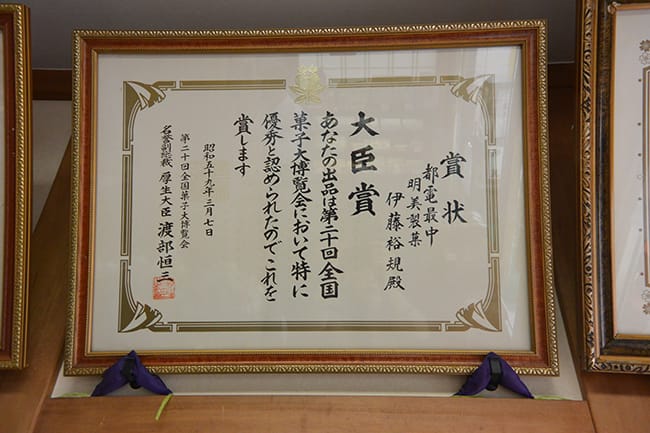 賞状
都電最中
明美製菓
伊藤裕規殿
大臣賞
あなたの出品は第二十回全国
菓子大博覧会において特に
優秀と認められたのでこれを
賞します
昭和五十九年三月七日
第二十回全国菓子大博覧会
名誉副総裁 厚生大臣 渡部恒三